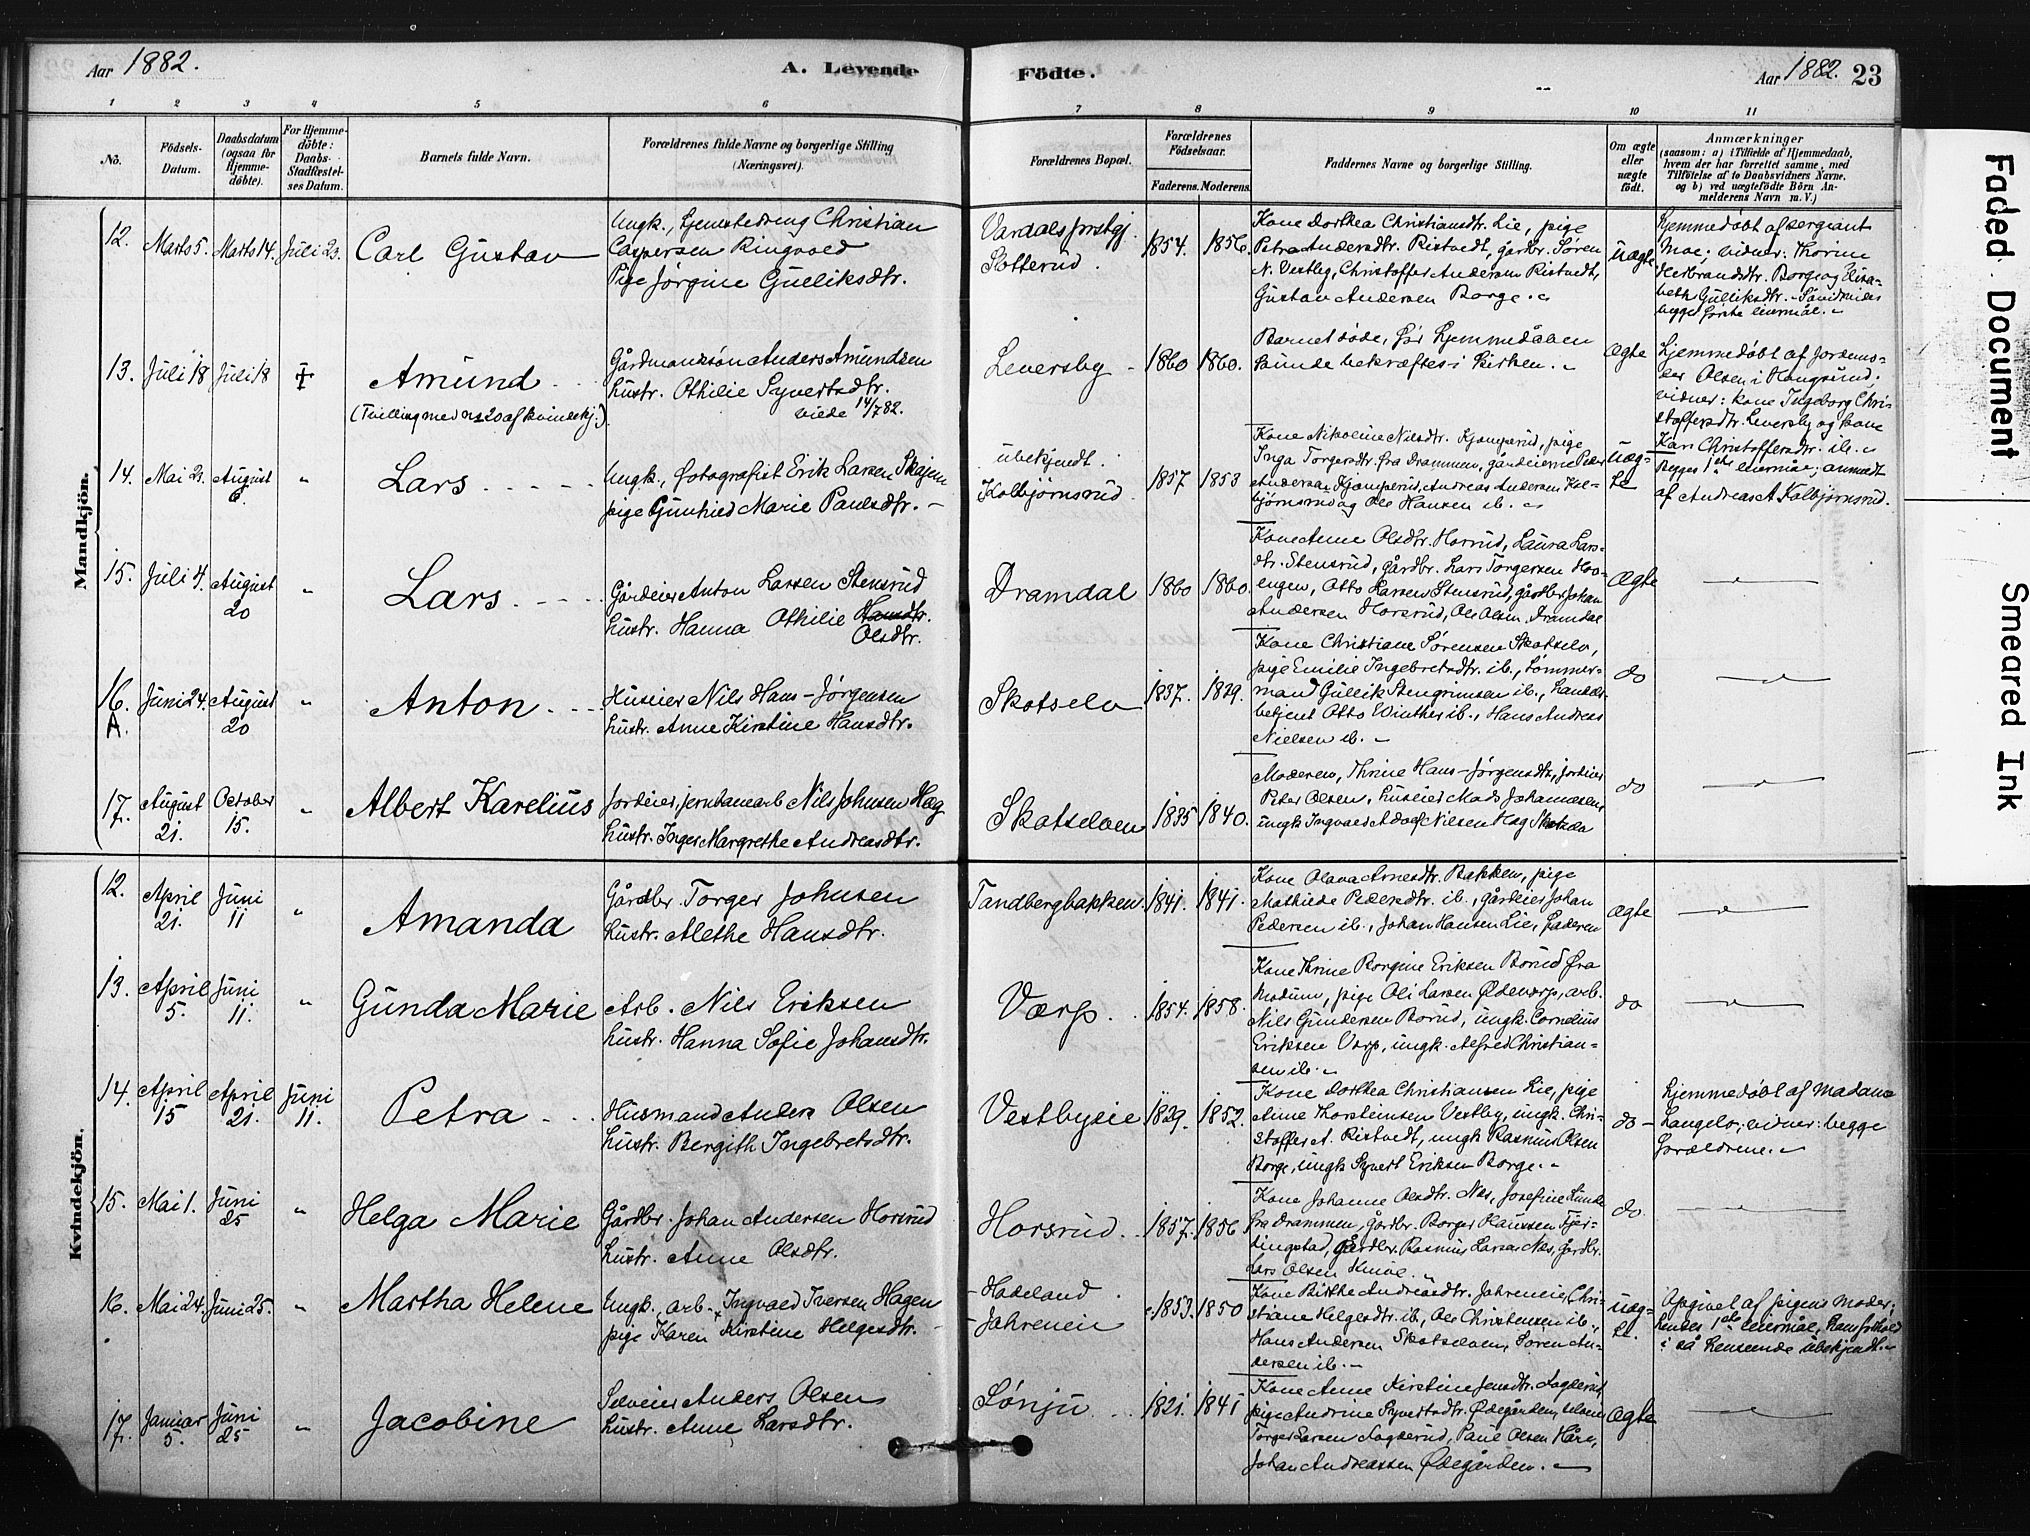 Aar 1882.
A. Levende
Födte.
Aar 1882. 23
1 2 3 4 5 6 7 8 9 10 11
No.
Födsels-
Datum.
Daabsdatum
(ogsaa for
Hjemme-
døbte).
For Hjemme-
døbte:
Daabs-
Stadfæstel-
ses Datum.
Barnets fulde Navn.
Forældrenes fulde Navne og borgerlige Stilling
(Næringsvei).
Forældrenes Bopæl.
Forældrenes
Födselsaar.
Faderens. Moderens.
Faddernes Navne og borgerlige Stilling.
Om ægte
eller
uægte
født.
Anmærkninger
(saasom: a) i Tilfælde af Hjemmedaab,
hvem der har forrettet samme, med
Tilføielse af to Daabsvidners Navne,
og b) ved uægtefödte Börn An-
melderens Navn m. V.)
Mandkjön.
12. Marts 5. Marts 14. Juli 23. Carl Gustav
Ungk., Christian
Caspersen Ringvold
Pige Jørgine Gulliksdtr.
Slotterud.
1854. 1856.
Kone Dorthea Christiansdtr. Lie, pige
Petra Andersdtr. Ristvedt, gårdbr. Søren
N. Vestby, Christoffer Andersen Ristvedt,
Gustav Andersen Borge.
uægte
hjemmedøbt af sergiant
Moe; vidner: Thorine
Borge og Elisa-
beth Gulliksdtr.
begges første leiermål.
13. Juli 18 Juli 18 Amund
(Tvilling med no 20 af kvindekj.)
Gårdmansøn Anders Amundsen
hustr. Othilie Syvertsdtr.
viede 14/7 82.
Leversby
1860 1860.
Barnet døde, før hjemmedåben
kunde bekræftes i kirken.
Ægte
hjemmedøbt af jordemo-
der Olsen i Hougsund;
vidner: kone Ingeborg Chri-
stoffersdtr. Leversby og kone
Kari Christoffersdtr. ib.
14. Mai 23. August 6. " Lars
Ungk., fotografist Erik Larsen Skajem
pige Gunhild Marie Paulsdtr.
ubekjendt.
Kolbjørnsrud.
1857 1853
Kone Nikoline Nilsdtr. Kjomperud, pige
Inga Torgersdtr. fra Drammen, gårdeierne Peder
Andersen Kjomperud, Andreas Andersen Kol-
bjørnsrud og Ole Hansen ib.
uæg-
te
Begges 1ste leiermål; anmeldt
af Andreas A. Kolbjørnsrud.
15. Juli 4. August 20 " Lars
Gårdeier Anton Larsen Stensrud
hustr. Hanna Othilie Hansdtr.
Olsdtr.
Dramdal
1860 1860.
Kone Anne Olsdtr. Horsrud, Laura Lars-
dtr. Stensrud, gårdbr. Lars Torgersen Hoo-
engen, Otto Larsen Stensrud, gårdbr. Johan
Andersen Horsrud, Ole Olsen Dramdal
Ægte
16. A. Juni 24. August 20 " Anton
Huseier Nils Hans-Jørgensen
hustr. Anne Kirstine Hansdtr.
Skotselv
1837. 1839.
Kone Christiane Sørensen Skotselv,
pige Emilie Ingebretsdtr. ib., tømmer-
mand Gullik Stengrimsen ib., handels
betjent Otto Winther ib., Hans Andreas
Nielsen ib.
do
17. August 21. October 15. " Albert Karelius
Jordeier, jernbanearb Nils Johnsen Hæg
hustr. Inger Margrethe Andreasdtr.
Skotselven
1835 1840.
Moderen, Thrine Hans-Jørgensdtr., jordeier
Peter Olsen, huseier Mads Johannesen,
ungk. Ingvald Adolf Nilsen Hæg
do
Kvindekjön.
12. April 21. Juni 11 " Amanda
Gårdbr. Torger Johnsen
hustr. Alethe Hansdtr.
Tandbergbakken.
1841. 1841.
Kone Olava Arnesdtr. Bakken, pige
Mathilde Pedersdtr. ib., gårdeier Johan
Pedersen ib., Johan Hansen Lie, faderen
ægte
13. April 5. Juni 11. " Gunda Marie
Arb. Nils Eriksen
hustr. Hanna Sofie Johansdtr.
Varp.
1854. 1858.
Kone Thrine Borgine Eriksen Borud fra
Modum, pige Oli Larsen Ødevarp, arb.
Nils Gundersen Borud, ungk. Cornelius
Eriksen Varp, ungk. Alfred Christian-
sen ib.
do
14. April 15 April 21. Juni 11. Petra
Husmand Anders Olsen
hustr. Bergith Ingebretsdtr.
Vestbyeie
1829. 1852.
Kone Dorthea Christiansen Lie, pige
Anne Thorsteinsen Vestby, ungk. Chri-
stoffer A. Ristvedt, ungk Rasmus Olsen
Borge, ungk Syvert Eriksen Borge.
do
hjemmedøbt af madame
Langelo; vidner: begge
forældrene.
15. Mai 1. Juni 25 " Helga Marie
Gårdbr. Johan Andersen Horsrud
hustr. Anne Olsdtr.
Horsrud.
1857. 1856
Kone Johanne Olsdtr. Næs, Josefine Lunde
fra Drammen, gårdbr. Borger Klaussen Fjer-
dingstad, gårdbr. Rasmus Larsen Næs, gårdbr.
Lars Olsen
do
16. Mai 24. Juni 25. " Martha Helene
Ungk., arb. Ingvald Iversen Hagen
pige Karen Kirstine Helgesdtr.
Hadeland.
Jahreneie
1853. 1850
Kone Birthe Andreasdtr. Jahreneie, Chri-
stiane Helgesdtr. ib., Ole Christensen ib.,
Hans Andersen Skotselven, Søren An-
dersen ib.
uæg-
te.
Opgivet af pigens moder;
hendes 1ste leiermål, hans forhold
i så henseende ubekjendt.
17. Januar 5. Juni 25 " Jacobine
Selveier Anders Olsen
hustr. Anne Larsdtr.
Sønju
1821. 1841
Kone Anne Kirstine Jensdtr. Lagderud,
pige Andrine Syvertsdtr. Ødegården, selveier
Torger Larsen Lagderud, Paul Olsen Håre,
Johan Andreassen Ødegården.
Ægte
Faded Document
Smeared Ink